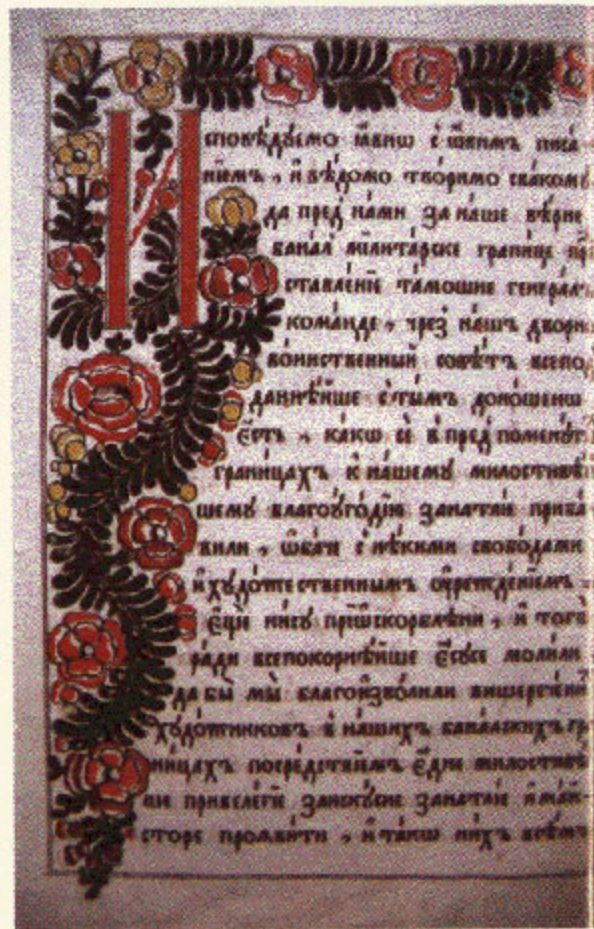 Исповѣдуемо ꙗвнѡ с ѡвимъ писа-
нїемъ, и вѣдомо творимо свакому
да пред нами за наше вѣрне
банал милитарске границе пре
ставленїе тамошне генерал
команде, чрез нашъ дворн
воинственный совѣтъ всепо
даннѣйше с тымъ доношенїи
єсть, какѡ се в пред поменут
границахъ к нашему милостивѣ
шему благоугодїю занатли приба-
вили, ѡбаче с нѣкими свободами
и художественнымъ оучрежденїемъ
єще нису прїискорблѣни, и тогѡ
ради всепокорнѣйше єсусе молили
да бы мы благоизволили вишеречен
художниковъ в нашихъ баналскихъ гра
ницахъ посредствїемъ єдне милостивѣ
ше привелегїе за искусне занатлїе и май-
сторе проѧвити, и такѡ нихъ всѣмъ